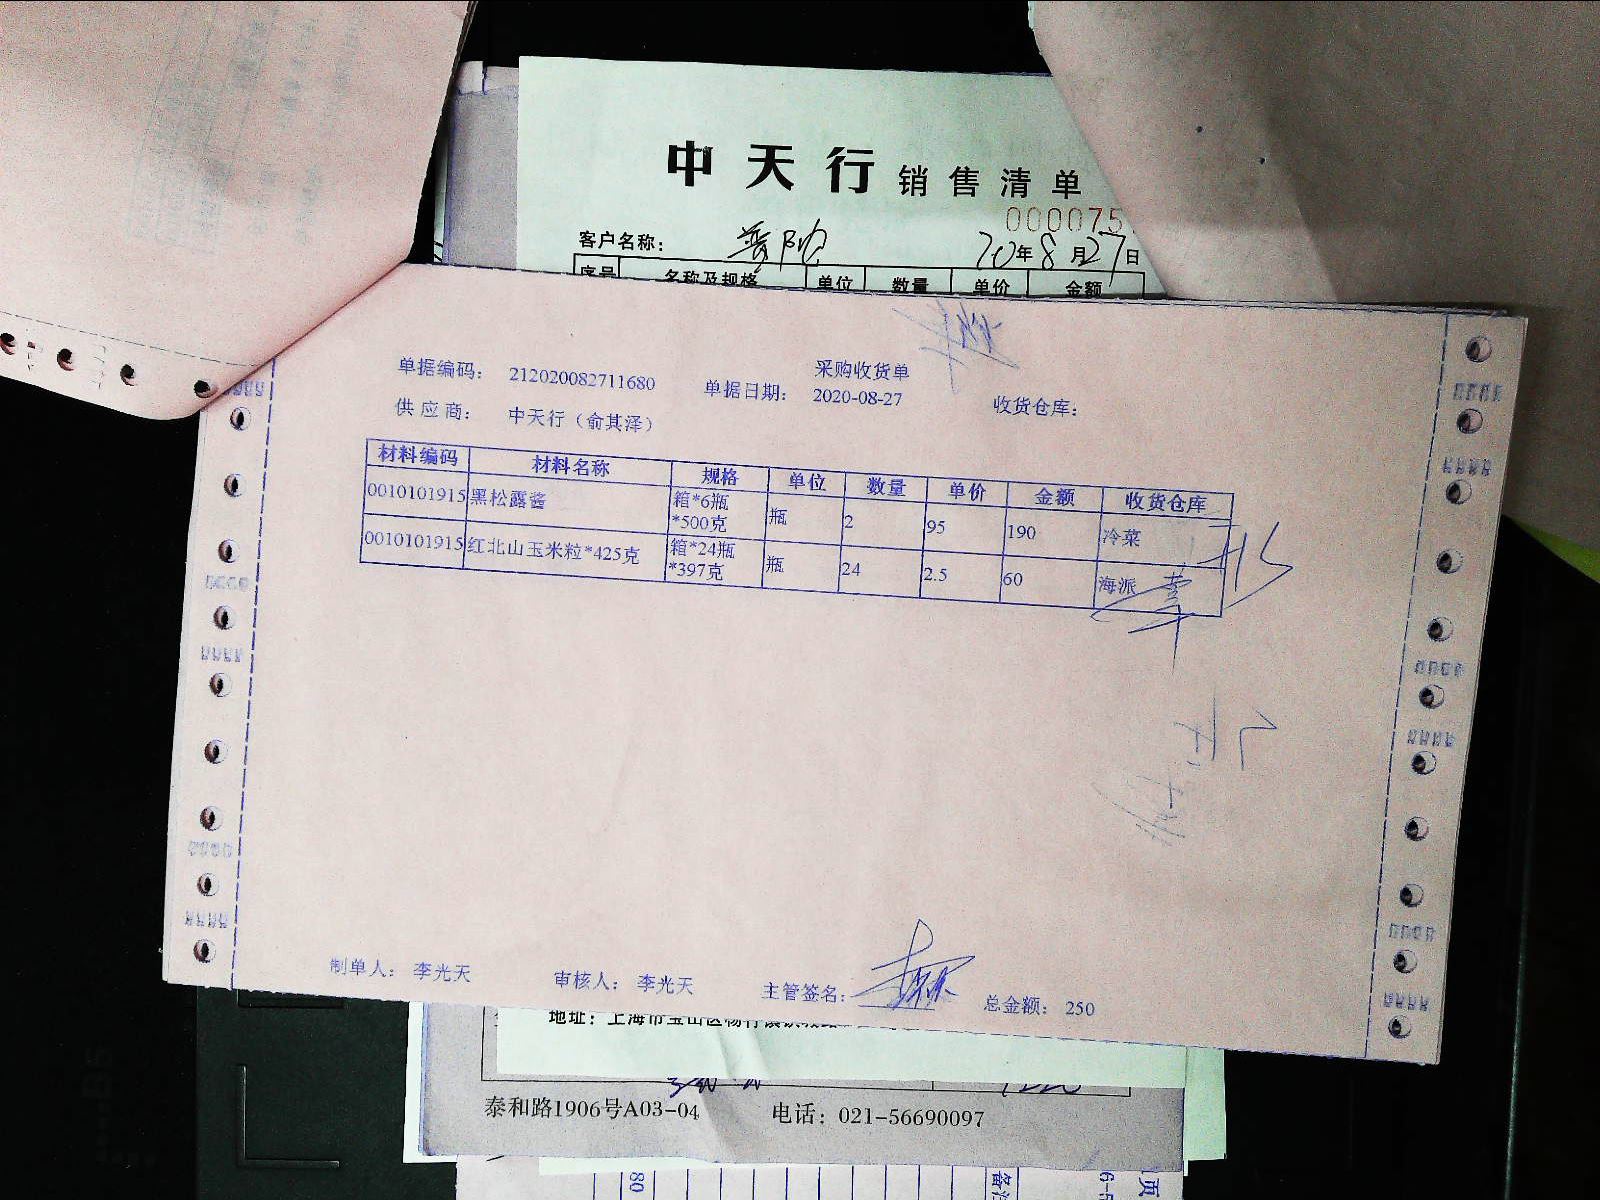 中天行 销售清单
000075
客户名称： 普陀 20年8月27日
序号 名称及规格 单位 数量 单价 金额
采购收货单
单据编码： 212020082711680 单据日期： 2020-08-27 收货仓库：
供应商： 中天行（俞其泽）
材料编码 材料名称 规格 单位 数量 单价 金额 收货仓库
0010101915 黑松露酱 箱*6瓶*500克 瓶 2 95 190 冷菜
0010101915 红北山玉米粒*425克 箱*24瓶*397克 瓶 24 2.5 60 海派
制单人： 李光天 审核人： 李光天 主管签名： 总金额： 250
地址：上海市宝山区杨行镇
泰和路1906号A03-04 电话：021-56690097
80